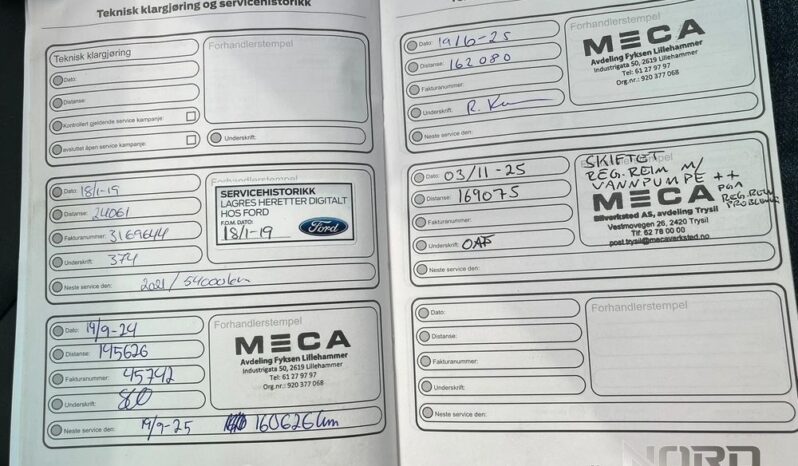 Teknisk klargjøring og servicehistorikk
Teknisk klargjøring
Dato:
Distanse:
Kontrollert gjeldende service kampanje:
avsluttet åpen service kampanje:
Forhandlerstempel
Underskrift:
Dato: 18/1-19
Distanse: 24061
Fakturanummer: 3169644
Underskrift: 374
Neste service den: 2021 / 54000km
Forhandlerstempel
SERVICEHISTORIKK
LAGRES HERETTER DIGITALT
HOS FORD
F.O.M. DATO:
18/1-19
Ford
Dato: 19/9-24
Distanse: 145626
Fakturanummer: 45742
Underskrift:
Neste service den: 19/9-25 160626km
Forhandlerstempel
MECA
Avdeling Fyksen Lillehammer
Industrigata 50, 2619 Lillehammer
Tel: 61 27 97 97
Org.nr.: 920 377 068
Dato: 19/6-25
Distanse: 162080
Fakturanummer:
Underskrift:
Neste service den:
Forhandlerstempel
MECA
Avdeling Fyksen Lillehammer
Industrigata 50, 2619 Lillehammer
Tel: 61 27 97 97
Org.nr.: 920 377 068
Dato: 03/11-25
Distanse: 169075
Fakturanummer:
Underskrift: OAF
Neste service den:
SKIFTET
REG.REIM M/
VANNPUMPE ++
PGA
REG.REIM
PROBLEMER
MECA
Bilverksted AS, avdeling Trysil
Vestmovegen 26, 2420 Trysil
Tlf: 62 78 00 00
post.trysil@mecaverksted.no
Dato:
Distanse:
Fakturanummer:
Underskrift:
Neste service den:
Forhandlerstempel
NORD